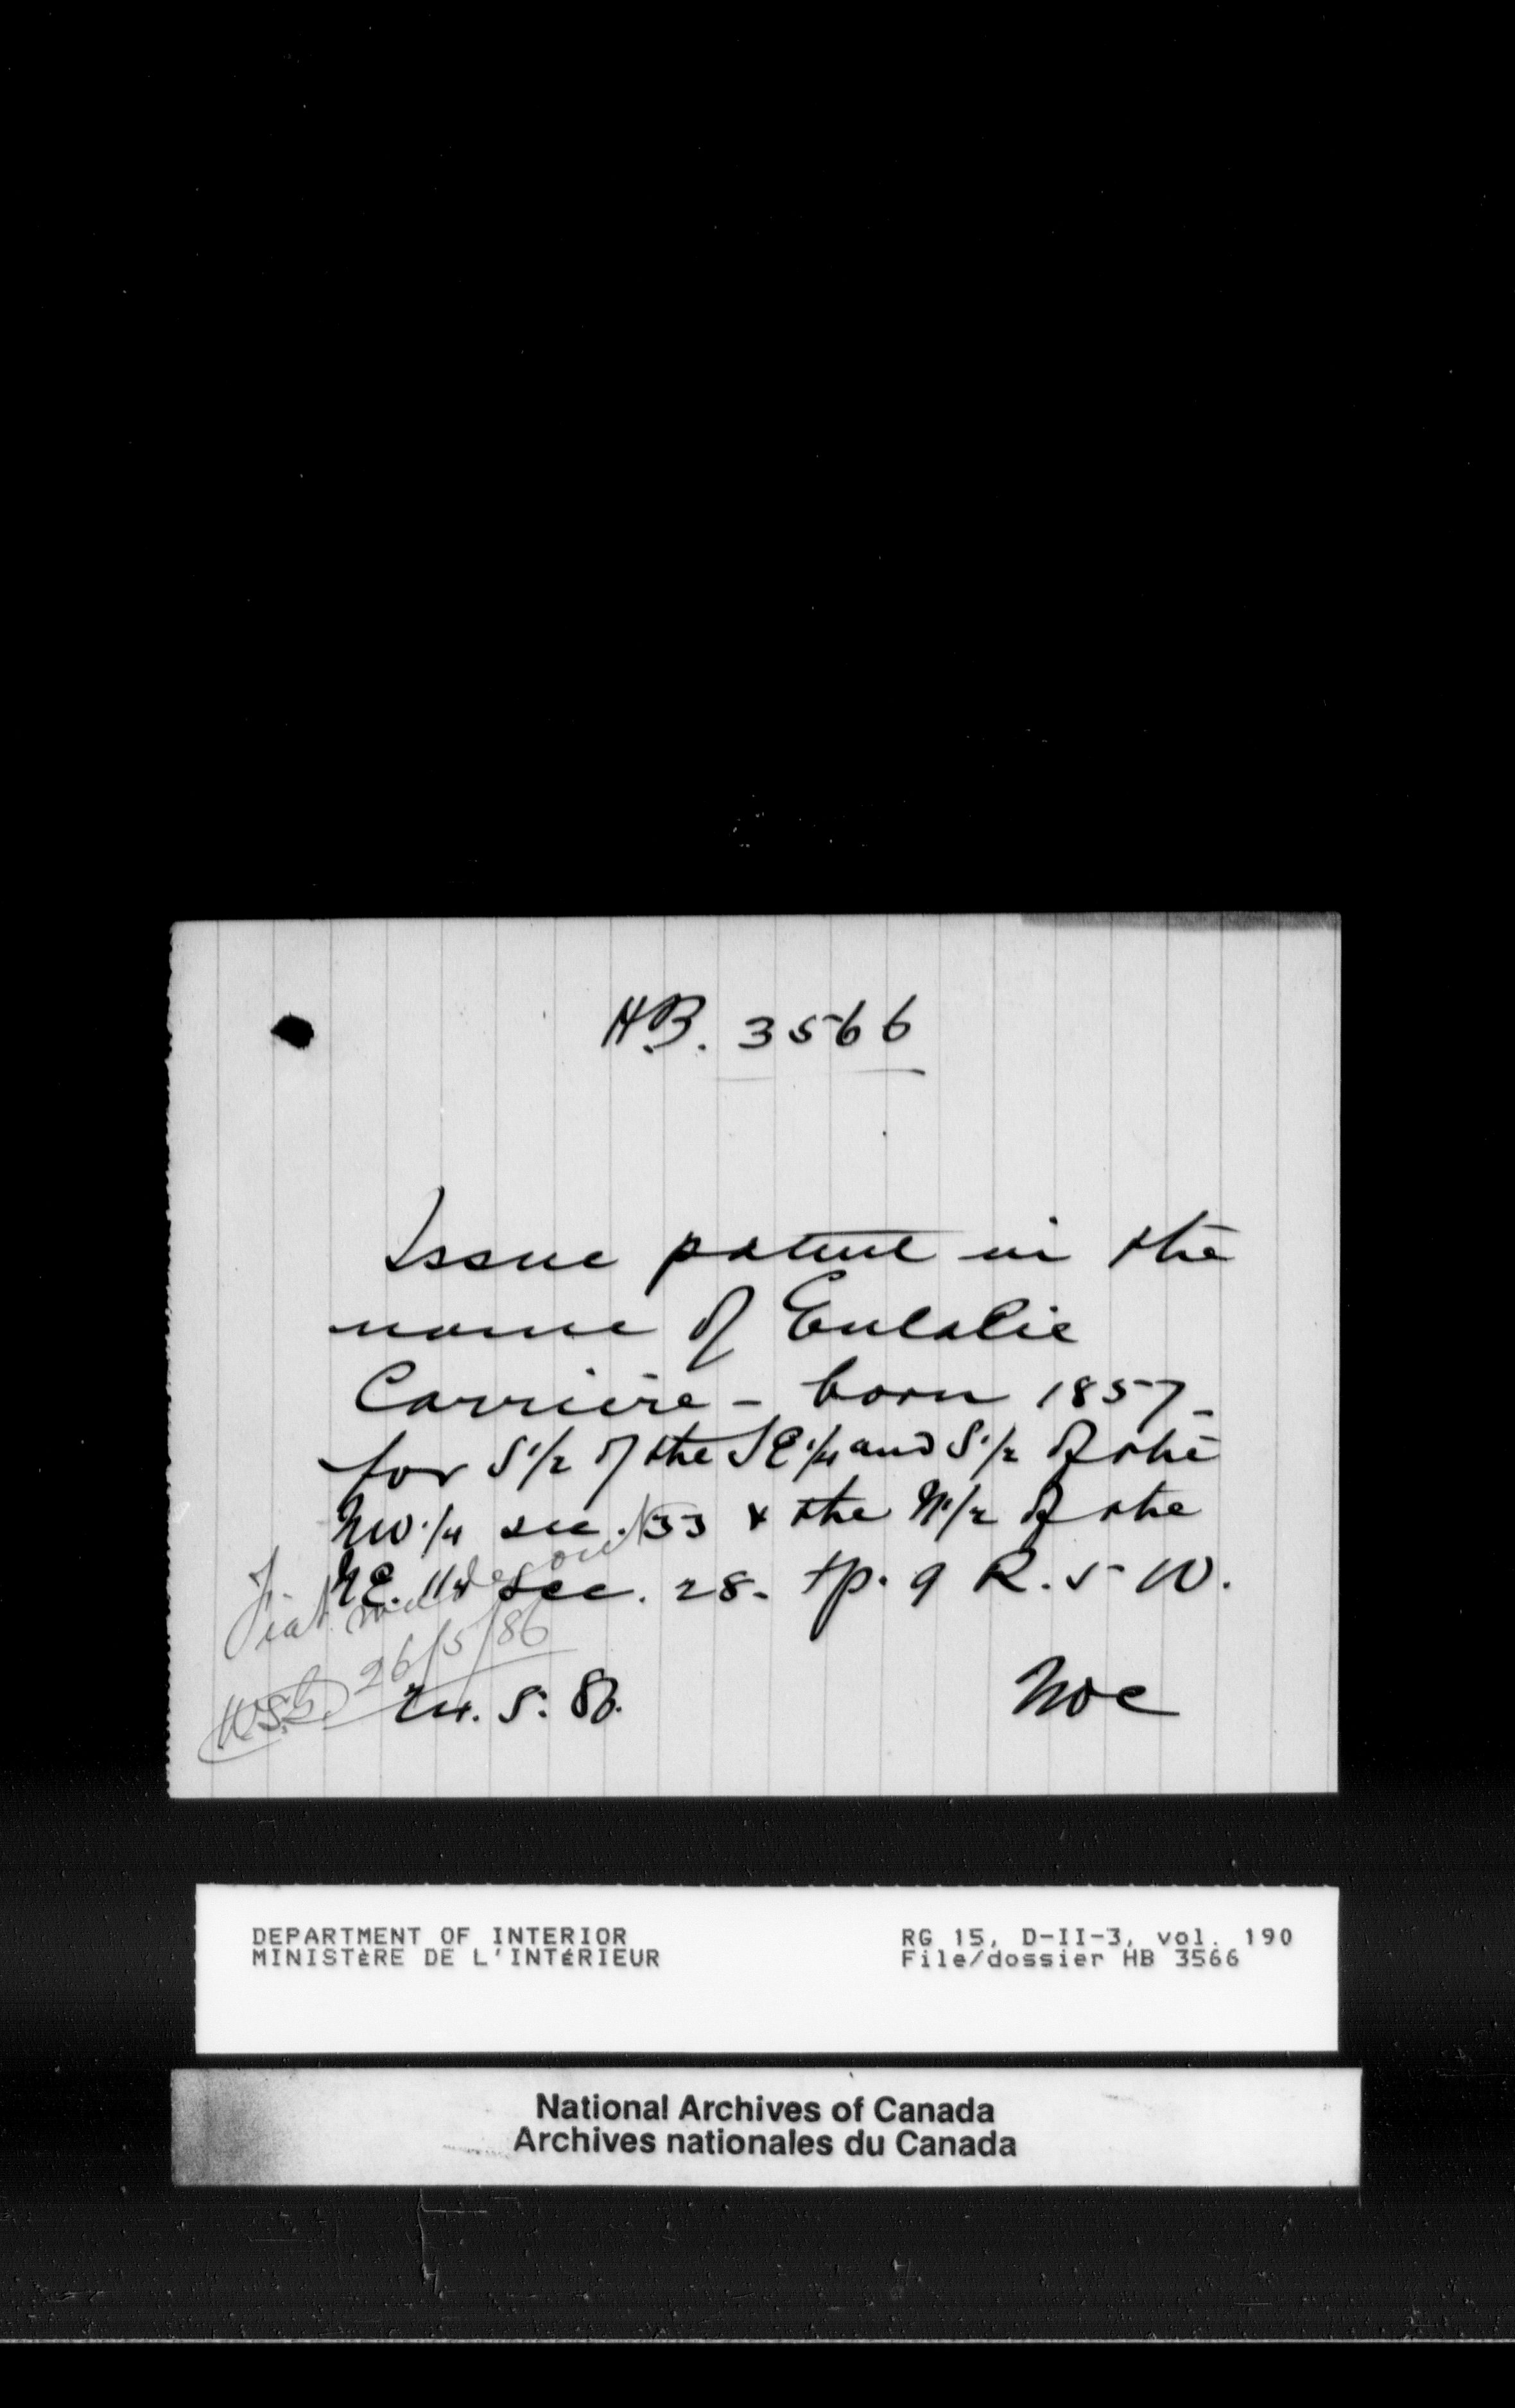 HB. 3566
Issue patent in the
name of Eulalie
Carrière - born 1857 -
for S.1/2 of the SE.1/4 and S.1/2 of the
NW.1/4 sec. 33 & the N.1/2 of the
NE. 1/4 sec. 28. tp. 9 R. 5 W.
Fiat
26/5/86
24. 5. 86.
DEPARTMENT OF INTERIOR
MINISTÈRE DE L'INTÉRIEUR
RG 15, D-II-3, vol. 190
File/dossier HB 3566
National Archives of Canada
Archives nationales du Canada